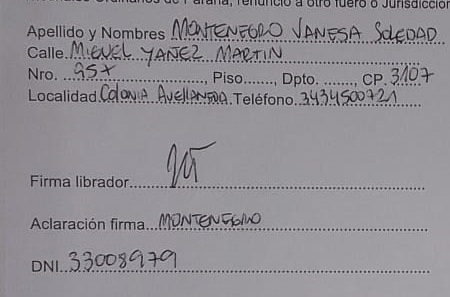 Ordinarios de Paraná, renuncio a otro fuero o Jurisdicción
Apellido y Nombres MONTENEGRO VANESA SOLEDAD
Calle MIGUEL YAÑEZ MARTIN
Nro. 957, Piso......., Dpto. ......., CP. 3107
Localidad COLONIA AVELLANEDA Teléfono 3434500721
Firma librador
Aclaración firma MONTENEGRO
DNI 33008979